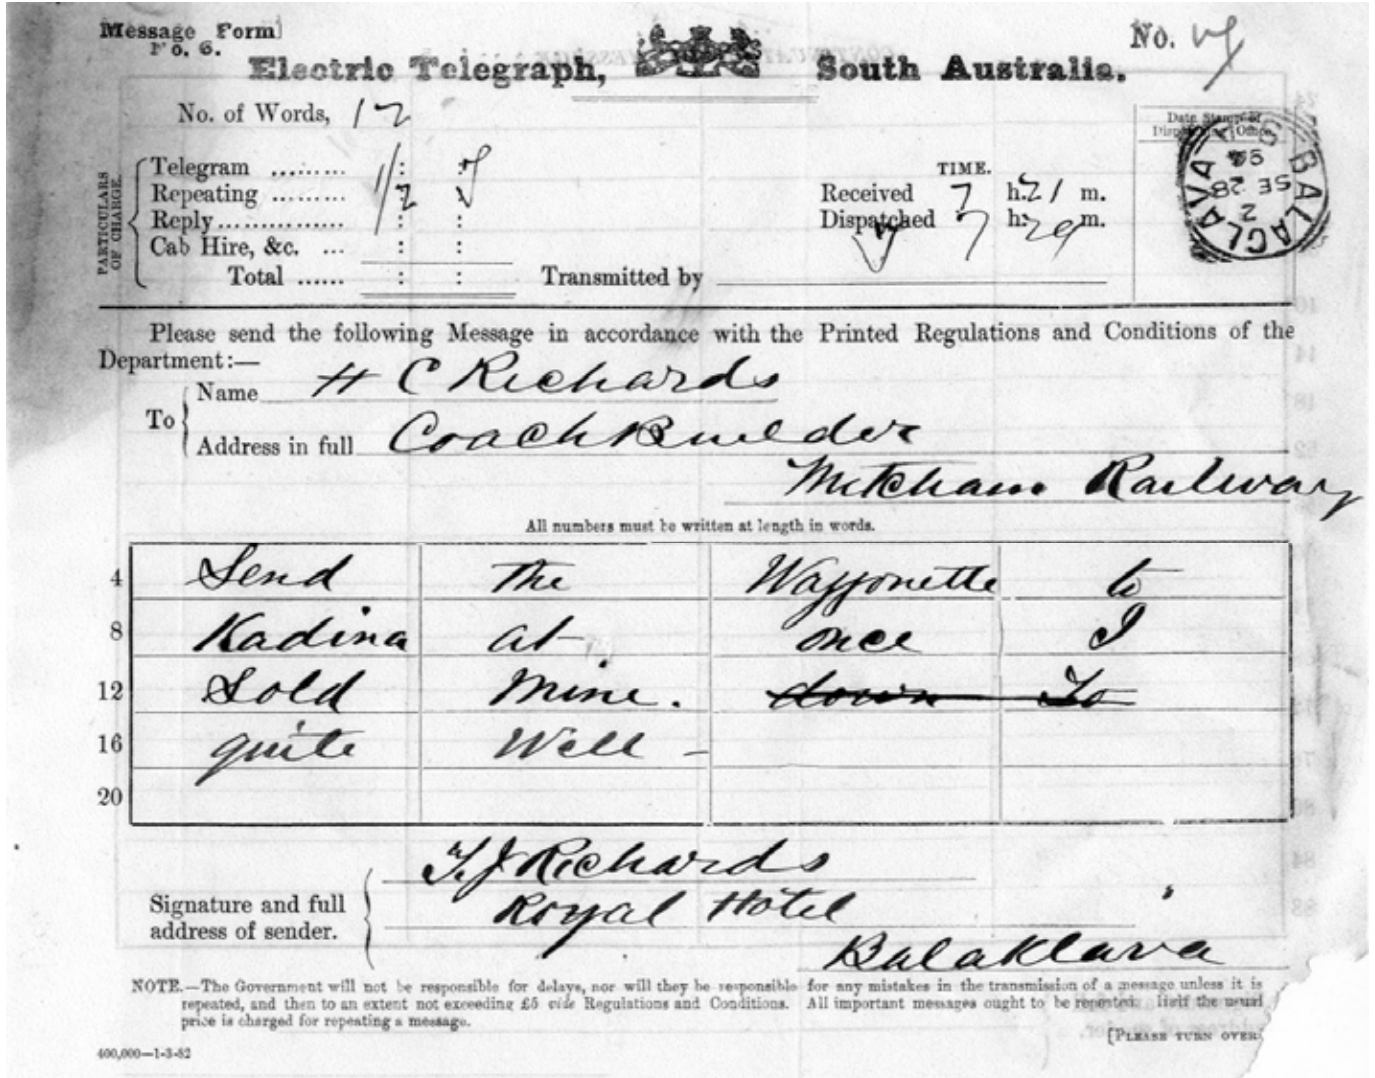 Message Form
No. 6.
No.
Electric Telegraph, South Australia.
No. of Words, 12
Date Stamp of
Dispatching Office
PARTICULARS
OF CHARGE.
Telegram .........
Repeating .........
Reply...............
Cab Hire, &c. ...
Total ......
TIME.
Received 7 h. 21 m.
Dispatched 7 h. 29 m.
Transmitted by
BALACLAVA
S.A
94
SE 28
2
Please send the following Message in accordance with the Printed Regulations and Conditions of the
Department:—
To
Name H C Richards
Address in full Coach Builder
Mitcham Railway
All numbers must be written at length in words.
4 Send the Waggonette to
8 Kadina at once I
12 Sold mine. down To
16 quite Well –
20
T.J Richards
Signature and full
address of sender.
Royal Hotel
Balaklava
NOTE.—The Government will not be responsible for delays, nor will they be responsible for any mistakes in the transmission of a message unless it is
repeated, and then to an extent not exceeding £5 vide Regulations and Conditions. All important messages ought to be repeated. Half the usual
price is charged for repeating a message.
[PLEASE TURN OVER.
400,000—1-3-82